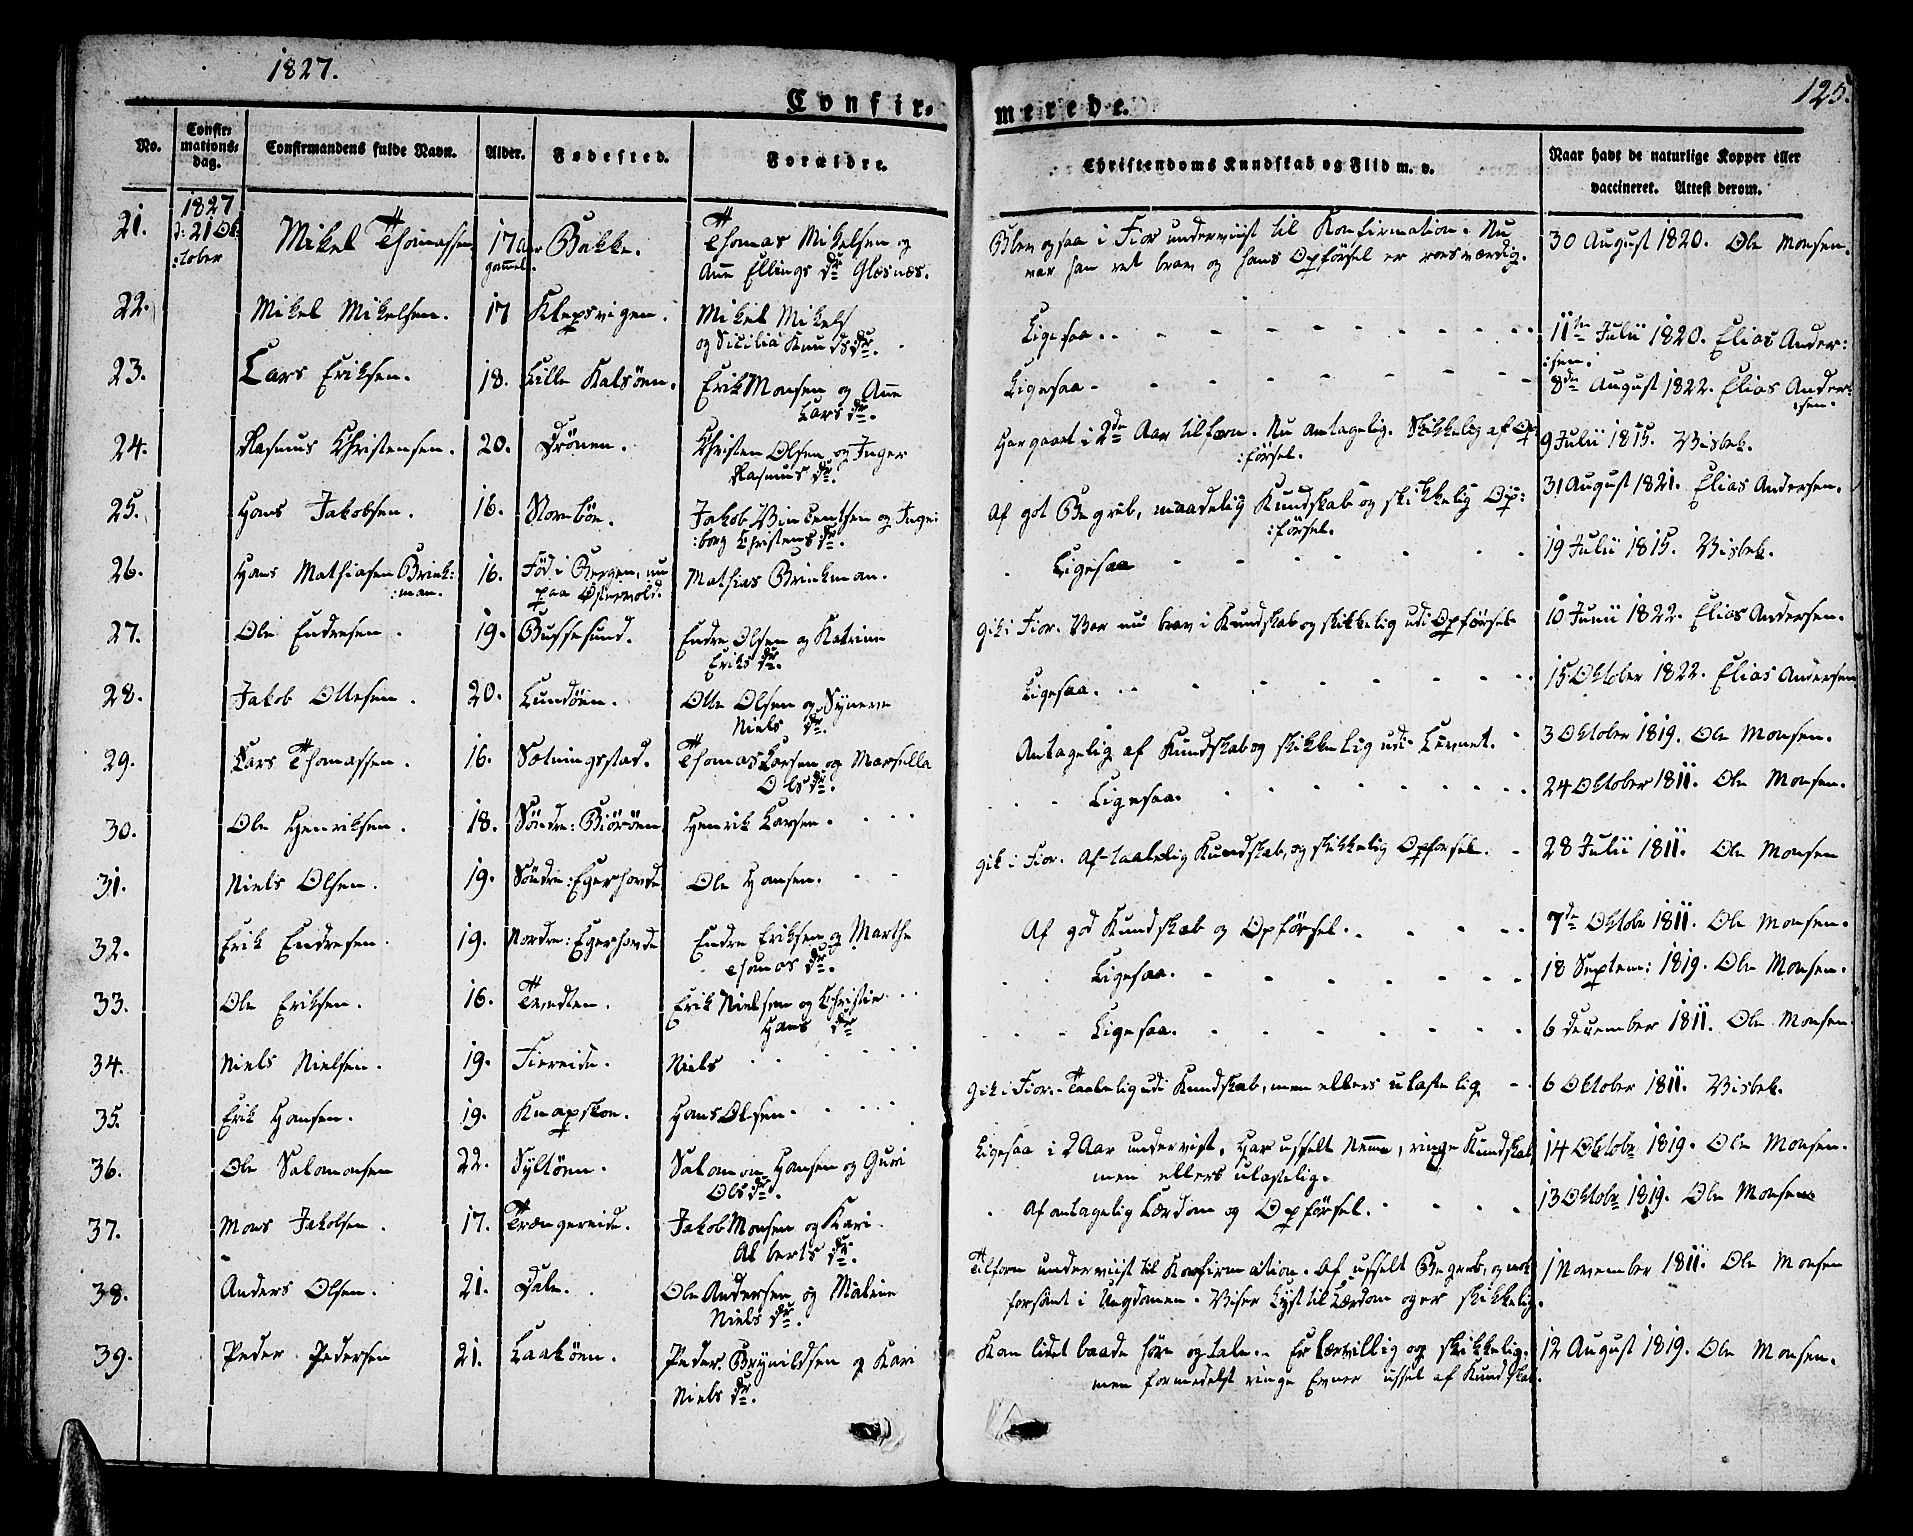 1827.
125.
Confir-
merede.
No.
Confir-
mations-
dag.
Confirmandens fulde Navn.
Alder.
Fødested.
Forældre.
Christendoms Kundskab og Flid m. v.
Naar havt de naturlige Kopper eller
vaccineret. Attest derom.
21.
1827
d: 21 Ok
:tober
Mikel Thomassen
17 aar
gammel.
Bakke.
Thomas Mikelsen og
Anne Ellings dr Glesnæs.
Blev ogsaa i Fior underviist til Konfirmation. Nu
var han ret brav og hans Opførsel er roesværdig.
30 August 1820. Ole Monsen.
22.
Mikel Mikelsen.
17
Klepsvigen.
Mikel Mikels
og Sicilia Knuds dr.
Ligesaa.
11te Julii 1820. Elias Ander:
:sen.
23.
Lars Eriksen.
18.
Lille Kalsöen.
Erik Monsen og Anne
Lars dr.
Ligesaa
8de August 1822. Elias Ander:
:sen.
24.
Rasmus Christensen.
20.
Drönen.
Christen Olsen og Inger
Rasmus dr.
Har gaaet i 2de Aar tilforn. Nu antagelig. Skikkelig af Op
:førsel.
9 Julii 1815. Visbek.
25.
Hans Jakobsen.
16.
Stornböe.
Jakob Vincentsen og Inge:
:borg Christens dr.
Af got Begreb, maadelig Kundskab og skikkelig Op:
:førsel.
31 August 1821. Elias Andersen.
26.
Hans Mathiasen Brink:
:man.
16.
Föd i Bergen, nu
paa Østervold.
Mathias Brinkman.
Ligesaa
19 Julii 1815. Visbek.
27.
Ole Endresen.
19.
Bussesund.
Endre Olsen og Katrine
Eriks dr.
gik i Fior. Var nu brav i Kundskab og skikkelig udi Opførsel
10 Junii 1822. Elias Andersen.
28.
Jakob Ottesen.
20.
Lundöen.
Otte Olsen og Synneve
Niels dr.
Ligesaa.
15 Oktober 1822. Elias Andersen
29.
Lars Thomassen.
16.
Solningsstad.
Thomas Larsen og Marsella
Ols dr.
Antagelig af Kundskab og skikkelig udi Levnet.
3 Oktober 1819. Ole Monsen.
30.
Ole Henriksen.
18.
Söndre: Biöröen
Henrik Larsen.
Ligesaa.
24 Oktober 1811. Ole Monsen.
31.
Niels Olsen.
19.
Söndre: Egershovde
Ole Hansen.
gik i Fior. Af taalelig Kundskab, og skikkelig Opførsel.
28 Julii 1811. Ole Monsen
32.
Erik Endresen.
19.
Nordre: Egershovde
Endre Eriksen og Marthe
Thomas dr.
Af god Kundskab og Opførsel.
7de Oktobr 1811. Ole Monsen.
33.
Ole Eriksen.
16.
Tvedten.
Erik Nielsen og Christie
Hans dr
Ligesaa.
18 Septem: 1819. Ole Monsen.
34.
Niels Nielsen.
19.
Fiereide.
Niels
Ligesaa.
6 December 1811. Ole Monsen.
35.
Erik Hansen.
19.
Knapskoe.
Hans Olsen.
gik i Fior. Taalelig udi Kundskab, men ellers ulastelig
6 Oktober 1811. Visbek.
36.
Ole Salomonsen
22.
Syltöen.
Salomon Hansen og Guri
Ols dr.
Ligesaa i 2 Aar undervist. Har usselt Nemme, ringe Kundskab,
men ellers ulastelig.
14 Oktobr 1819. Ole Monsen.
37.
Mons Jakobsen.
17.
Trængereide.
Jakob Monsen og Kari
Alberts dr.
Af antagelig Lærdom og Opførsel.
13 Oktobr 1819. Ole Monsen
38.
Anders Olsen.
21.
Dale.
Ole Andersen og Malene
Niels dr.
Tilforn underviist til Konfirmation. Af usselt Begreb, og nok
forsömt i Ungdomen. Viser Lyst til Lærdom og er skikkelig.
1 November 1811. Ole Monsen
39.
Peder Pedersen
21.
Laaköen.
Peder Brynildsen og Kari
Niels dr.
Kan lidet baade høre og tale. Er lærvillig og skikkelig.
men formedelst ringe Evner ussel af Kundskab.
12 August 1819. Ole Monsen.